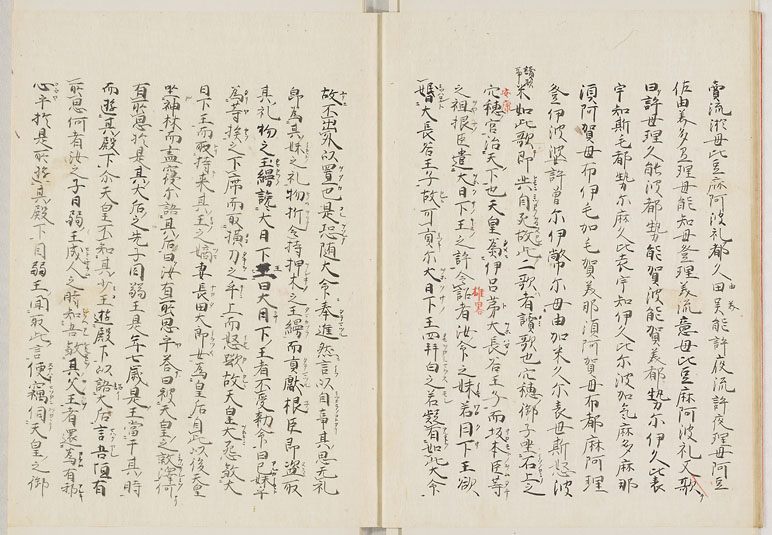 賣流淤母比豆麻阿波礼都久由美能許夜流許夜理母阿豆
佐由美多弖理母能知母登理美流意母比豆麻阿波礼又歌
曰許母理久能波都勢能賀波能賀美都勢尓伊久比袁
宇知斯毛都勢尓麻久比袁宇知伊久比尓波加氣多麻那
須阿賀母布伊毛加毛賀美那須阿賀母布都麻阿理
登伊波婆許曽尓伊弊尓母由加米久尓袁母斯怒波
米如此歌即共自死故此二歌者讀歌也穴穂御子坐石上之
安康
穴穂宮治天下也天皇為伊呂弟大長谷王子而坂本臣等
雄畧
之祖根臣遣大日下王之許令詔者汝命之妹若日下王欲
婚大長谷王子故可貢尓大日下王四拝白之若疑有如此大命
故不出外以置也是恐随大命奉進然言以白事其思无礼
即為其妹之礼物折令持押木之玉縵而貢獻根臣即盗取
其礼物之玉縵讒大日下王曰大日下王者不受勅命曰己妹乎
為等族之下席而取横刀之手上而怒歟故天皇大怒殺大
日下王而取持来其王之嫡妻長田大郎女為皇后自此以後天皇
坐神牀而晝寝尓語其后曰汝有所思乎答曰被天皇之敦澤何
有所思於是其大后之先子目弱王是年七歳是王當于其時
而遊其殿下尓天皇不知其少王遊殿下以詔大后言吾恒有
所思何者汝之子目弱王成人之時知吾殺其父王者還為有邪
心乎於是所遊其殿下目弱王聞取此言便竊伺天皇之御